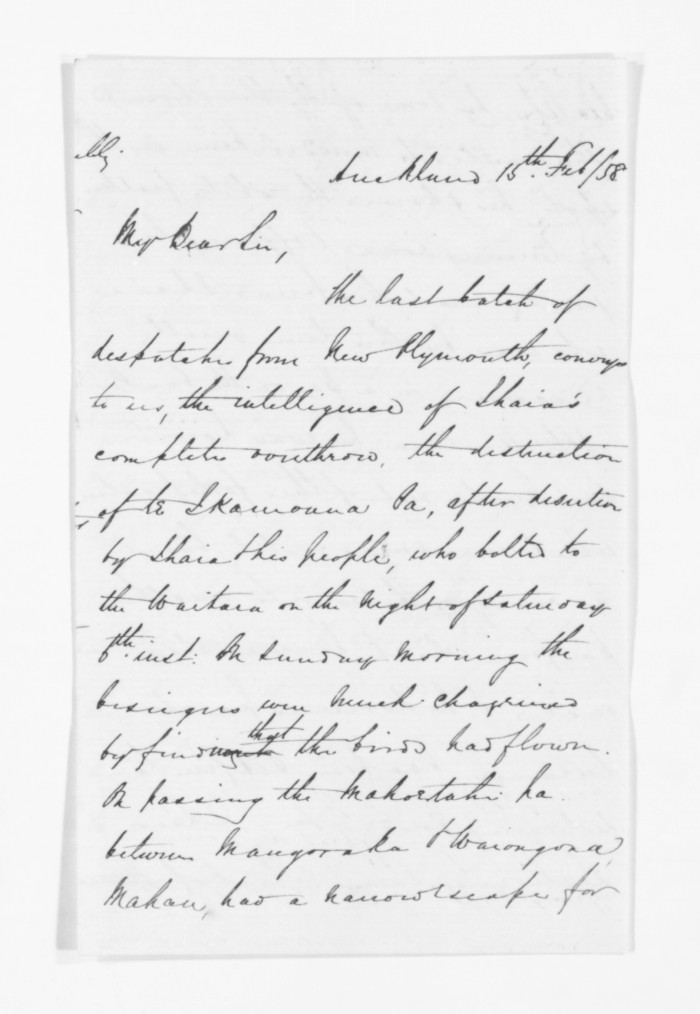 Auckland 15th. Feb/58
My Dear Sir,
the last batch of
despatches from New Plymouth, conveys
to us, the intelligence of Ihaia's
complete overthrow, the destruction
of te Ikamoana Pa, after desertion
by Ihaia & his people, who bolted to
the Waitara on the night of Saturday
6th. inst: On Sunday morning the
besiegers were much chagrined
by finding that the birds had flown.
On passing the Mahoetahi pa.
between Mangoraka & Waiongona,
Mahau, had a narrow escape for